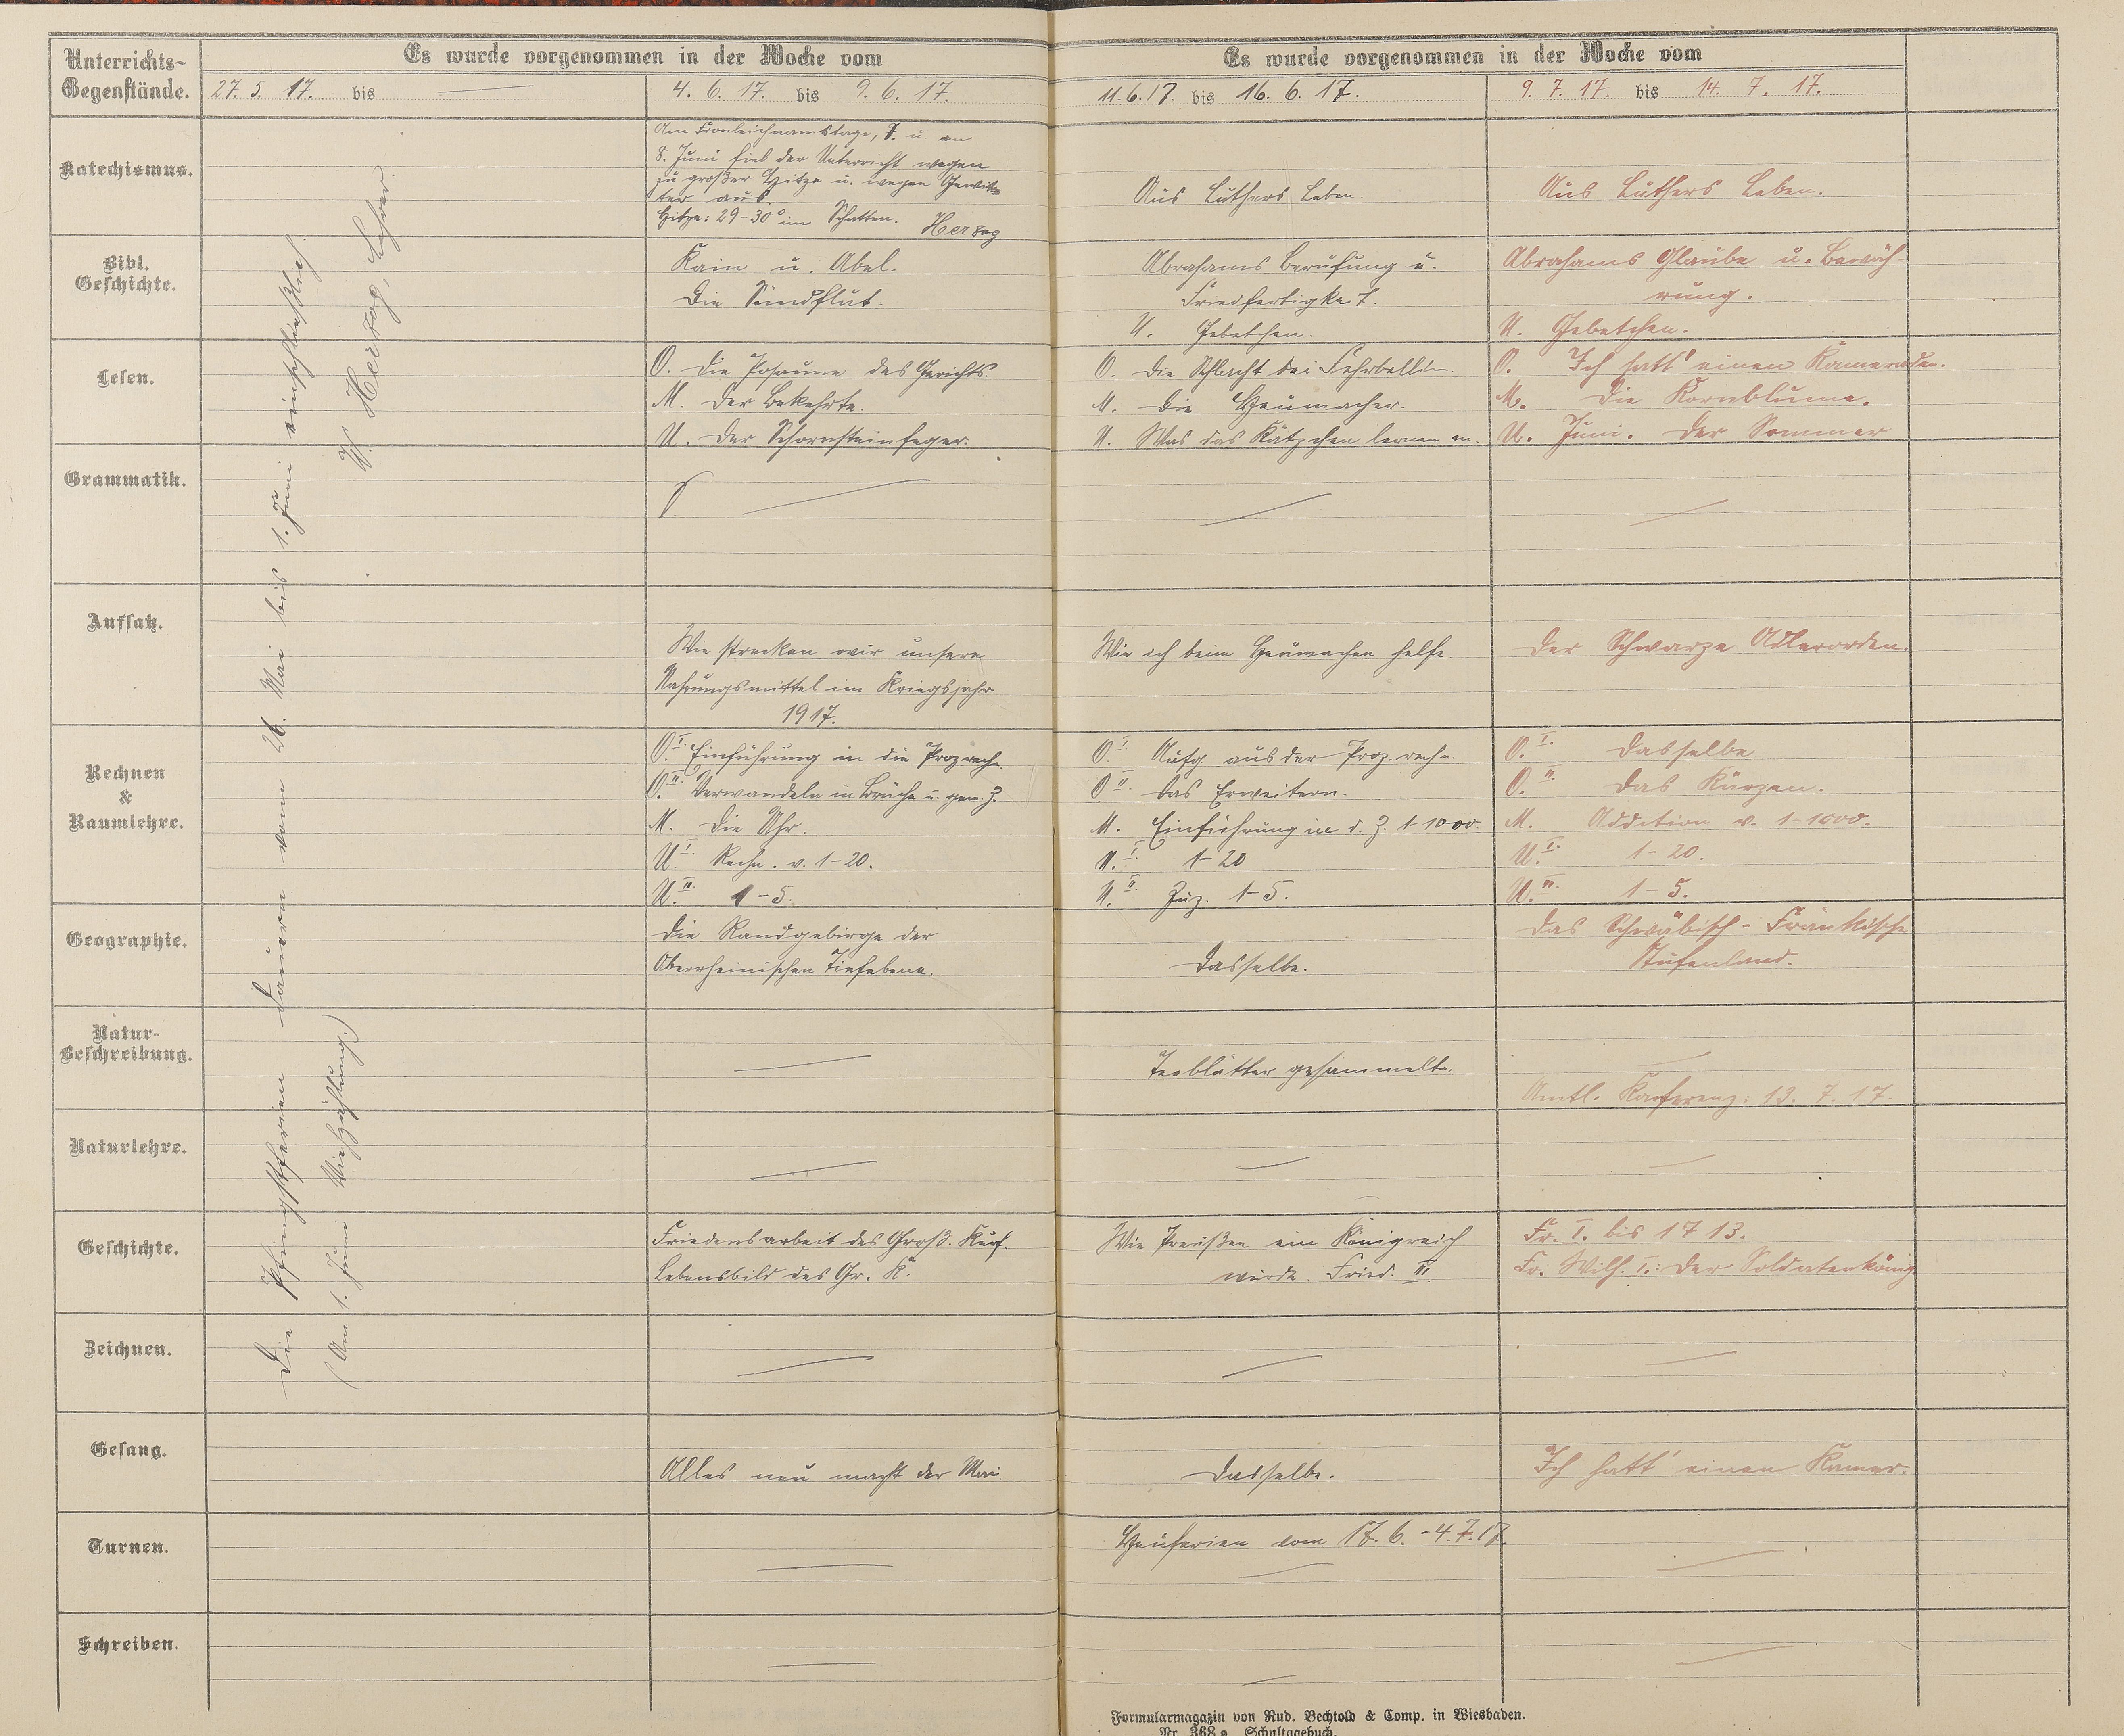 Unterrichts-
Gegenstände.
Es wurde vorgenommen in der Woche vom
Es wurde vorgenommen in der Woche vom
27. 5. 17. bis
4. 6. 17. bis 9. 6. 17.
11. 6. 17. bis 16. 6. 17.
9. 7. 17. bis 14. 7. 17.
Die Pfingstferien dauern vom 26. Mai bis 1. Juni einschließlich.
(Am 1. Juni Viehzählung.)
W. Herzog, Lehrer.
Katechismus.
Am Fronleichnamstage, 7. u. am
8. Juni fiel der Unterricht wegen
zu großer Hitze u. wegen Gewit-
ter aus.
Hitze: 29-30° im Schatten. Herzog
Aus Luthers Leben
Aus Luthers Leben.
Bibl.
Geschichte.
Kain u. Abel.
Die Sündflut.
Abrahams Berufung u.
Friedfertigkeit.
U. Gebetchen.
Abrahams Glaube u. Bewäh-
rung.
U. Gebetchen.
Lesen.
O. Die Posaune des Gerichts.
M. Der Bekehrte.
U. Der Schornsteinfeger.
O. Die Schlacht bei Fehrbellin.
M. Die Heumacher.
U. Was das Kätzchen lernen
O. Ich hatt' einen Kameraden.
M. Die Kornblume.
U. Juni. Der Sommer
Grammatik.
Aufsatz.
Wie strecken wir unsere
Nahrungsmittel im Kriegsjahr
1917.
Wie ich beim Heumachen helfe.
Der Schwarze Adlerorden.
Rechnen
&
Raumlehre.
O. I. Einführung in die Proz. rechn.
O. II. Verwandeln in Brüche u. gem. Z.
M. Die Uhr.
U. I. Rechn. v. 1-20.
U. II. 1-5.
O. I Aufg aus der Proz. rechn.
O II. Das Erweitern.
M. Einführung in d. Z. 1-1000
U. I. 1-20
U. II Zuz. 1-5.
O. I. Dasselbe
O. II. Das Kürzen.
M. Addition v. 1-1000.
U. I. 1-20.
U. II. 1-5.
Geographie.
Die Randgebirge der
Oberrheinischen Tiefebene.
Dasselbe.
Das Schwäbisch-Fränkische
Stufenland.
Natur-
Beschreibung.
Teeblätter gesammelt.
Amtl. Konferenz: 13. 7. 17.
Naturlehre.
Geschichte.
Friedensarbeit des Groß. Kurf.
Lebensbild des Gr. K.
Wie Preußen ein Königreich
wurde. Fried. III.
Fr. I. bis 1713.
Fr. Wilh. I.: Der Soldatenkönig
Zeichnen.
Gesang.
Alles neu macht der Mai.
Dasselbe.
Ich hatt' einen Kamer.
Turnen.
Heuferien vom 17. 6. - 4. 7. 17.
Schreiben.
Formularmagazin von Rud. Bechtold & Comp. in Wiesbaden.
Nr. 368 a. Schultagebuch.